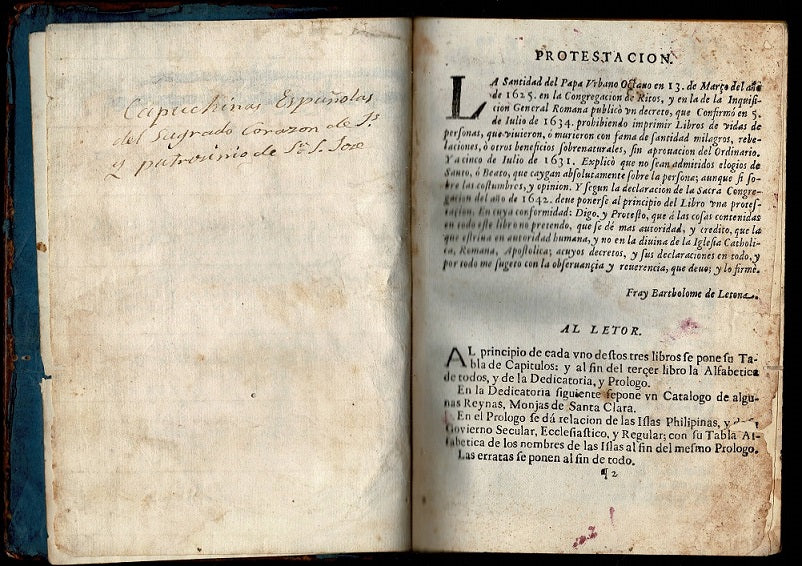 Capuchinas Españolas
del Sagrado Corazon de Js
y patrosinio de Sr. S. Jose
PROTESTACION.
LA Santidad del Papa Vrbano Octauo en 13. de Março del año
de 1625. en la Congregacion de Ritos, y en la de la Inquisi-
cion General Romana publicò vn decreto, que Confirmò en 5.
de Iulio de 1634. prohibiendo imprimir Libros de vidas de
personas, que viuieron, ò murieron con fama de santidad milagros, reue-
laciones, ò otros beneficios sobrenaturales, sin aprouacion del Ordinario.
Y a cinco de Iulio de 1631. Explicò que no sean admitidos elogios de
Santo, ò Beato, que caygan absolutamente sobre la persona; aunque si so-
bre las costumbres, y opinion. Y segun la declaracion de la Sacra Congre-
gacion del año de 1642. deue ponerse al principio del Libro vna protes-
tacion. En cuya conformidad: Digo, y Protesto, que à las cosas contenidas
en todo este libro no pretendo, que se dé más autoridad, y credito, que la
que estriua en autoridad humana, y no en la diuina de la Iglesia Catholi-
ca, Romana, Apostolica; acuyos decretos, y sus declaraciones en todo, y
por todo me sugeto con la obseruançia y reuerencia, que deuo; y lo firmè.
Fray Bartholome de Letona.
AL LETOR.
AL principio de cada vno destos tres libros se pone su Ta-
bla de Capitulos: y al fin del terçer libro la Alfabetica
de todos, y de la Dedicatoria, y Prologo.
En la Dedicatoria siguiente sepone vn Catalogo de algu-
nas Reynas, Monjas de Santa Clara.
En el Prologo se dá relacion de las Islas Philipinas, y
Govierno Secular, Ecclesiastico, y Regular; con su Tabla Al-
fabetica de los nombres de las Islas al fin del mesmo Prologo.
Las erratas se ponen al fin de todo.
¶ 2